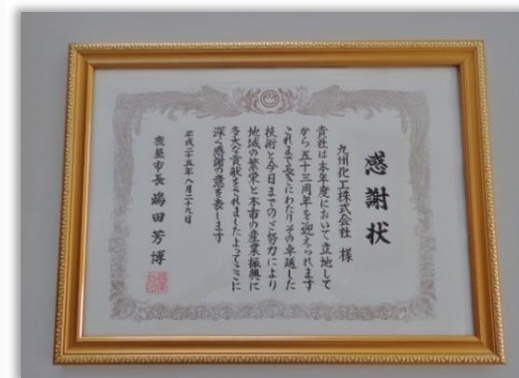 感謝状
九州化工株式会社 様
貴社は本年度において立地して
から五十三周年を迎えられます
これまで長きにわたりその卓越した
技術と今日までのご努力により
地域の繁栄と本市の産業振興に
多大な貢献をされましたよってここに
深く感謝の意を表します
平成二十五年八月二十九日
鹿屋市長 嶋田芳博